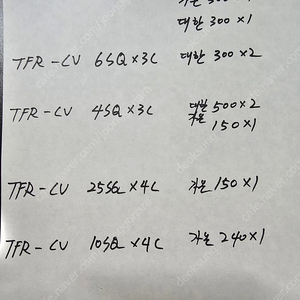 대한 300 × 1
TFR-CV 6SQ × 3C 대한 300 × 2
TFR-CV 4SQ × 3C 대한 500 × 2
가온 150 × 1
TFR-CV 25SQ × 4C 가온 150 × 1
TFR-CV 10SQ × 4C 가온 240 × 1